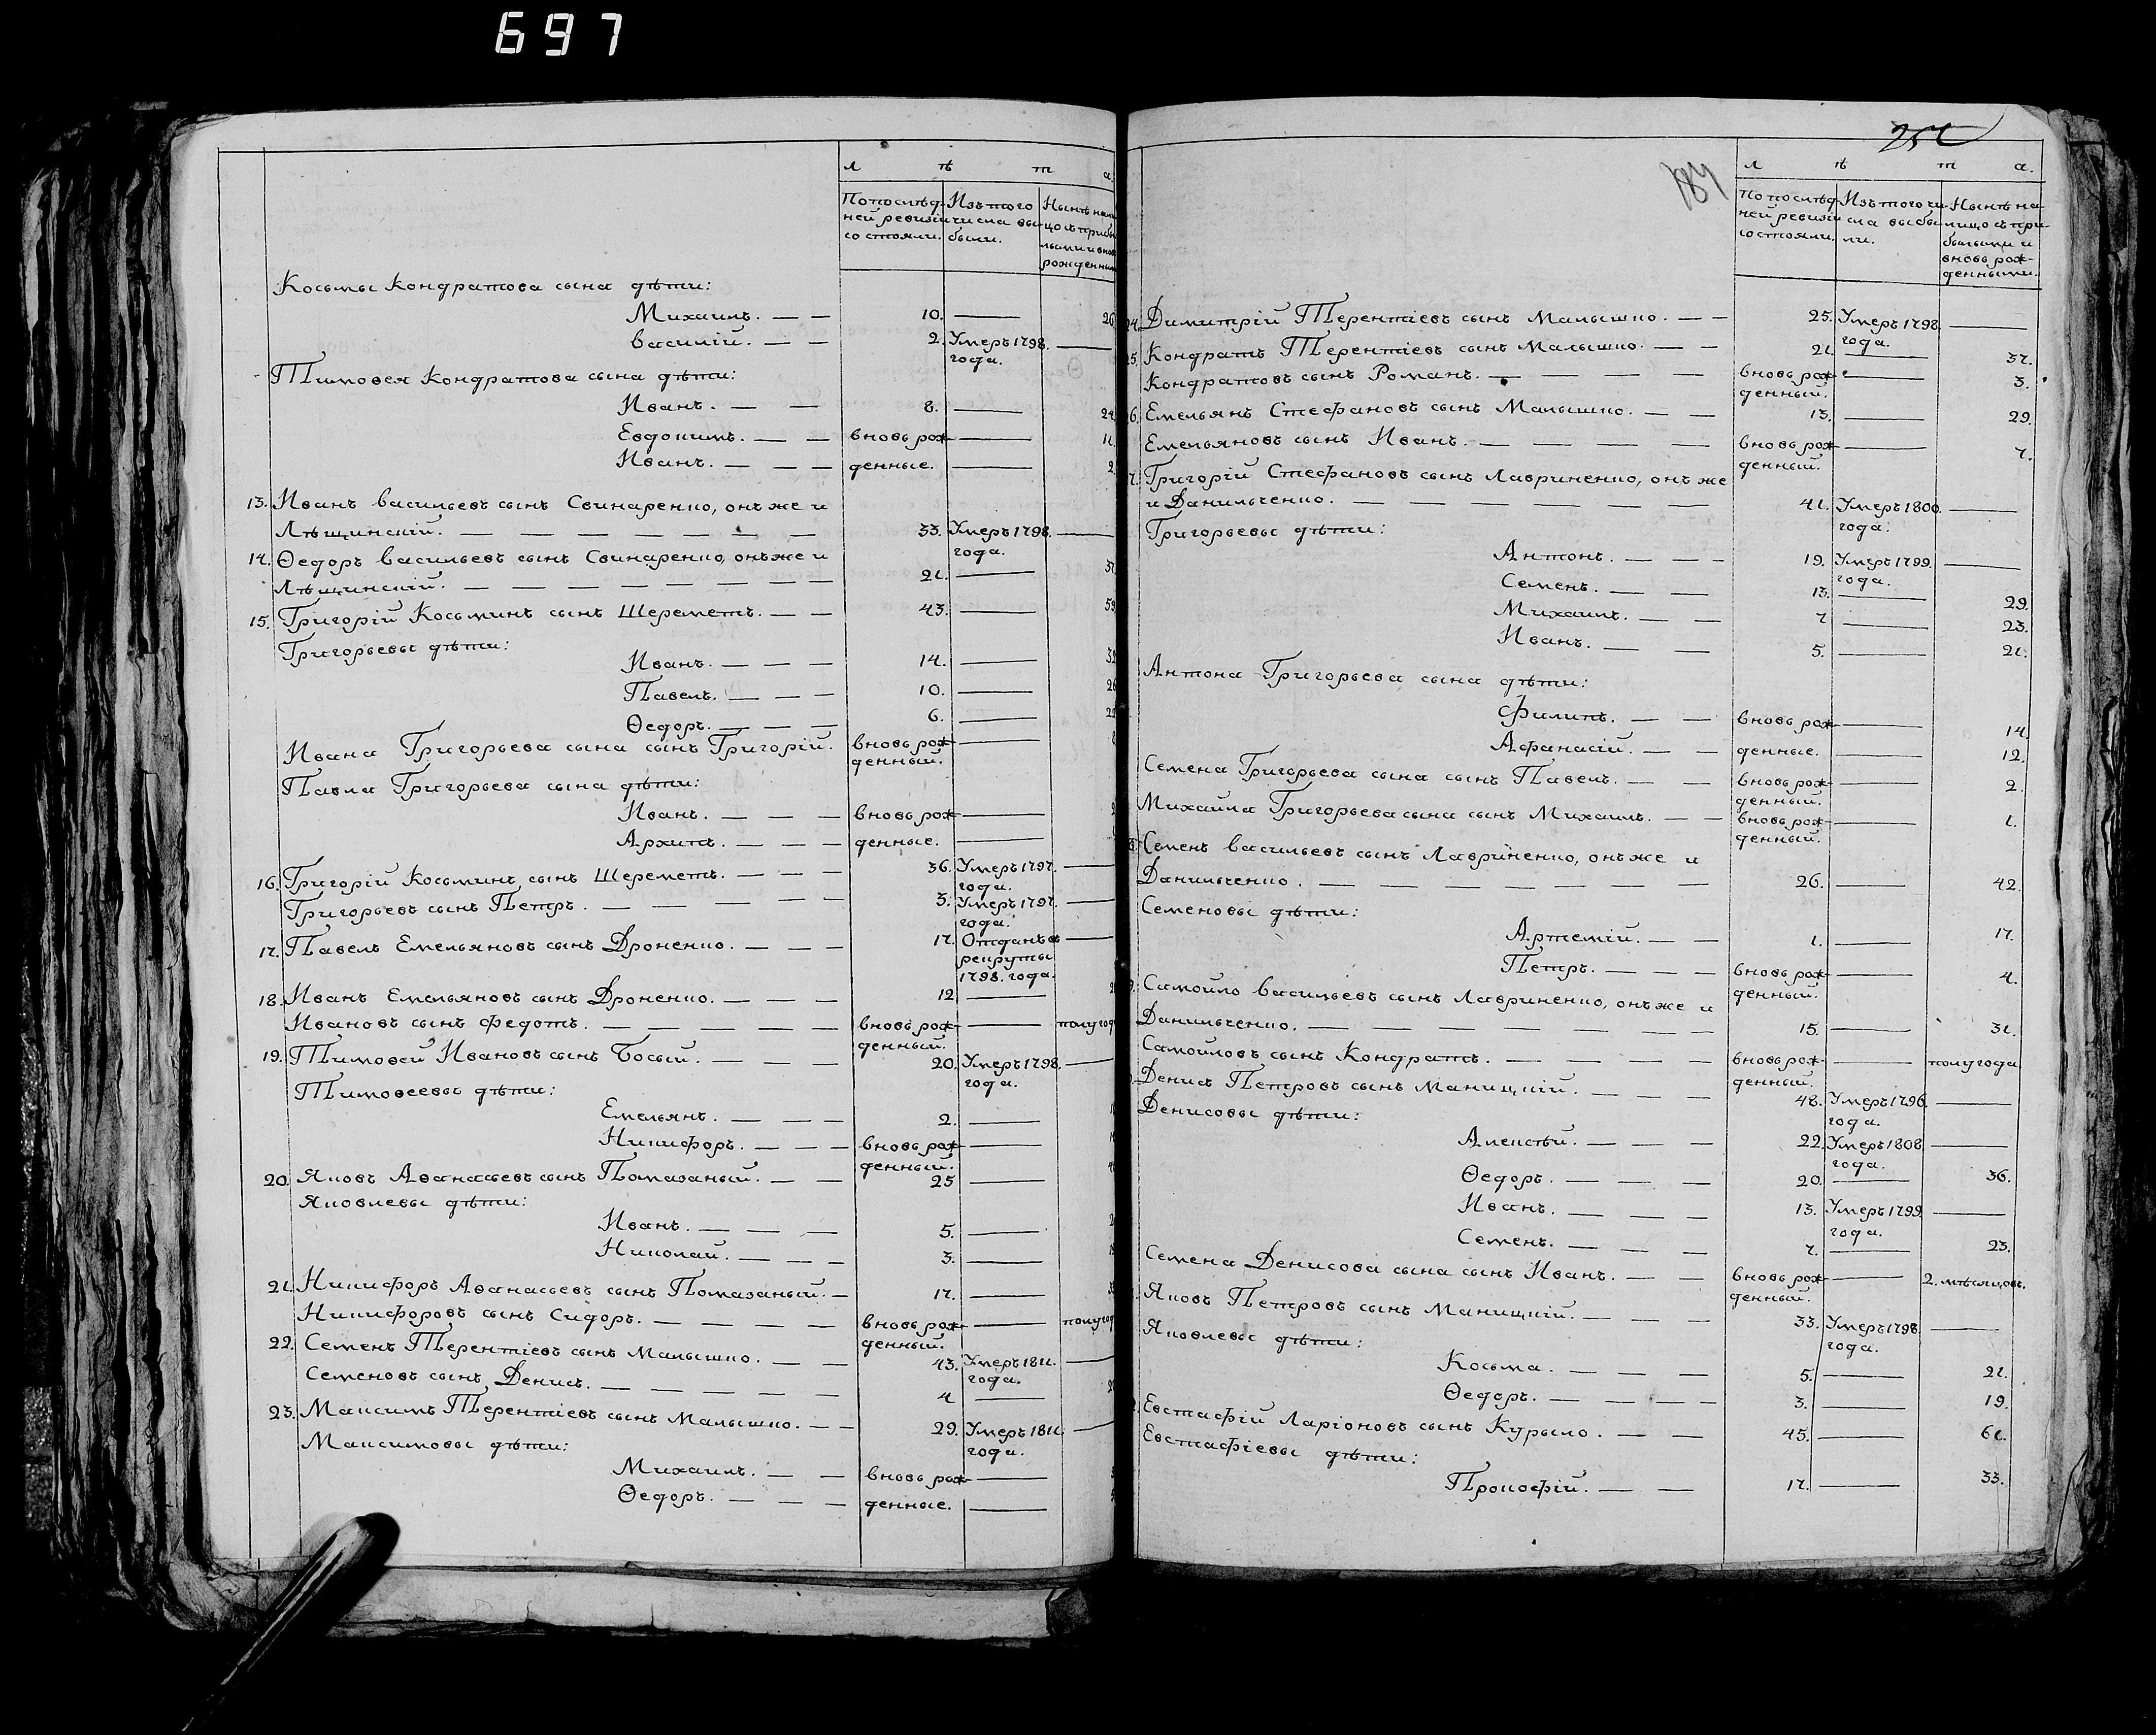 697
л ѣ т а.
По послѣд- Изъ того Нынѣ нали
ней ревизіи числа вы- цо съ прибы
состояли. были. лыми и вновь
рожденными
Косьмы Кондратова сына дѣти:
Михаилъ. — — 10. — 26
Василій. — — 2. Умеръ 1798. —
года.
Тимовея Кондратова сына дѣти:
Иванъ. — — 8. — 24
Евдокимъ. — — вновь рож- —
Иванъ. — — денные. — 2.
13. Иванъ Васильевъ сынъ Свинаренко, онъ же и
Лѣщинскій. — — — — — — 33. Умеръ 1798. —
года.
14. Ѳедоръ Васильевъ сынъ Свинаренко, онъ же и
Лѣщинскій. — — — — — — 21. — 37.
15. Григорій Косьминъ сынъ Шереметъ. — — 43. — 59.
Григорьевы дѣти:
Иванъ. — — — 14. —
Павелъ. — — — 10. — 26
Ѳедоръ. — — — 6. — 22
Ивана Григорьева сына сынъ Григорій. вновь рож- —
денный.
Павла Григорьева сына дѣти:
Иванъ. — — — вновь рож- —
Архипъ. — — — денные. —
16. Григорій Косьминъ сынъ Шереметъ. — — — 36. Умеръ 1797. —
года.
Григорьевъ сынъ Петръ. — — — — — 3. Умеръ 1797. —
года.
17. Павелъ Емельяновъ сынъ Дроненко. — — — 17. Отданъ в —
рекруты
1798. года.
18. Иванъ Емельяновъ сынъ Дроненко. — — — 12 —
Ивановъ сынъ Федотъ. — — — — — вновь рож- — полугод
денный.
19. Тимовей Ивановъ сынъ Босый. — — — 20. Умеръ 1798. —
года.
Тимовеевы дѣти:
Емельянъ. — — — 2. —
Никифоръ. — — — вновь рож- —
денный.
20. Яковъ Аванасьевъ сынъ Помазаный. — — 25 —
Яковлевы дѣти:
Иванъ. — — — 5. —
Николай. — — — 3. —
21. Никифоръ Аванасьевъ сынъ Помазаный. — 17. —
Никифоровъ сынъ Сидоръ. — — — — вновь рож- — полугод
денный.
22. Семенъ Терентіевъ сынъ Малышко. — — 43. Умеръ 1811. —
года.
Семеновъ сынъ Денисъ. — — — — — 4 —
23. Максимъ Терентіевъ сынъ Малышко. — — 29. Умеръ 1811. —
года.
Максимовы дѣти:
Михаилъ. — — вновь рож- —
Ѳедоръ. — — — денные. —
251
184
л ѣ т а.
По послѣд- Изъ того чи- Нынѣ на-
ней ревизіи сла выбы- лицо съ при-
состояли. ли. былыми и
вновь рож-
денными.
24. Димитрій Терентіевъ сынъ Малышко. — — 25. Умеръ 1798. —
года.
25. Кондратъ Терентіевъ сынъ Малышко. — — 21. — 37.
Кондратовъ сынъ Романъ. — — — — вновь рож- — 3.
денный.
26. Емельянъ Стефановъ сынъ Малышко. — — 13. — 29.
Емельяновъ сынъ Иванъ. — — — — вновь рож- — 7.
денный.
27. Григорій Стефановъ сынъ Лавриненко, онъ же
и Данильченко. — — — — — — 41. Умеръ 1800. —
года.
Григорьевы дѣти:
Антонъ. — — — 19. Умеръ 1799. —
года.
Семенъ. — — — 13. — 29.
Михаилъ. — — 7 — 23.
Иванъ. — — 5. — 21.
Антона Григорьева сына дѣти:
Филипъ. — — вновь рож- — 14.
Афанасій. — — денные. — 12.
Семена Григорьева сына сынъ Павелъ. — — вновь рож- — 2.
денный.
Михайла Григорьева сына сынъ Михаилъ. — — вновь рож- — 1.
денный.
28. Семенъ Васильевъ сынъ Лавриненко, онъ же и
Данильченко. — — — — — — — 26. — 42.
Семеновы дѣти:
Артемій. — — 1. — 17.
Петръ. — — — вновь рож- — 4.
денный.
29. Самойло Васильевъ сынъ Лавриненко, онъ же и
Данильченко. — — — — — — — 15. — 31.
Самойловъ сынъ Кондратъ. — — — — вновь рож- — полугода
денный.
Денисъ Петровъ сынъ Маницкій. — — — 48. Умеръ 1796. —
года.
Денисовы дѣти:
Алексѣй. — — — 22. Умеръ 1808. —
года.
Ѳедоръ. — — — 20. — 36.
Иванъ. — — — 13. Умеръ 1799. —
года.
Семенъ. — — — 7. — 23.
Семена Денисова сына сынъ Иванъ. — — вновь рож- — 2. мѣсяцовъ.
денный.
Яковъ Петровъ сынъ Маницкій. — — — 33. Умеръ 1798. —
года.
Яковлевы дѣти:
Косьма. — — — 5. — 21.
Ѳедоръ. — — — — 3. — 19.
Евстафій Ларіоновъ сынъ Курыло. — — 45. — 61.
Евстафіевы дѣти:
Прокофій. — — 17. — 33.